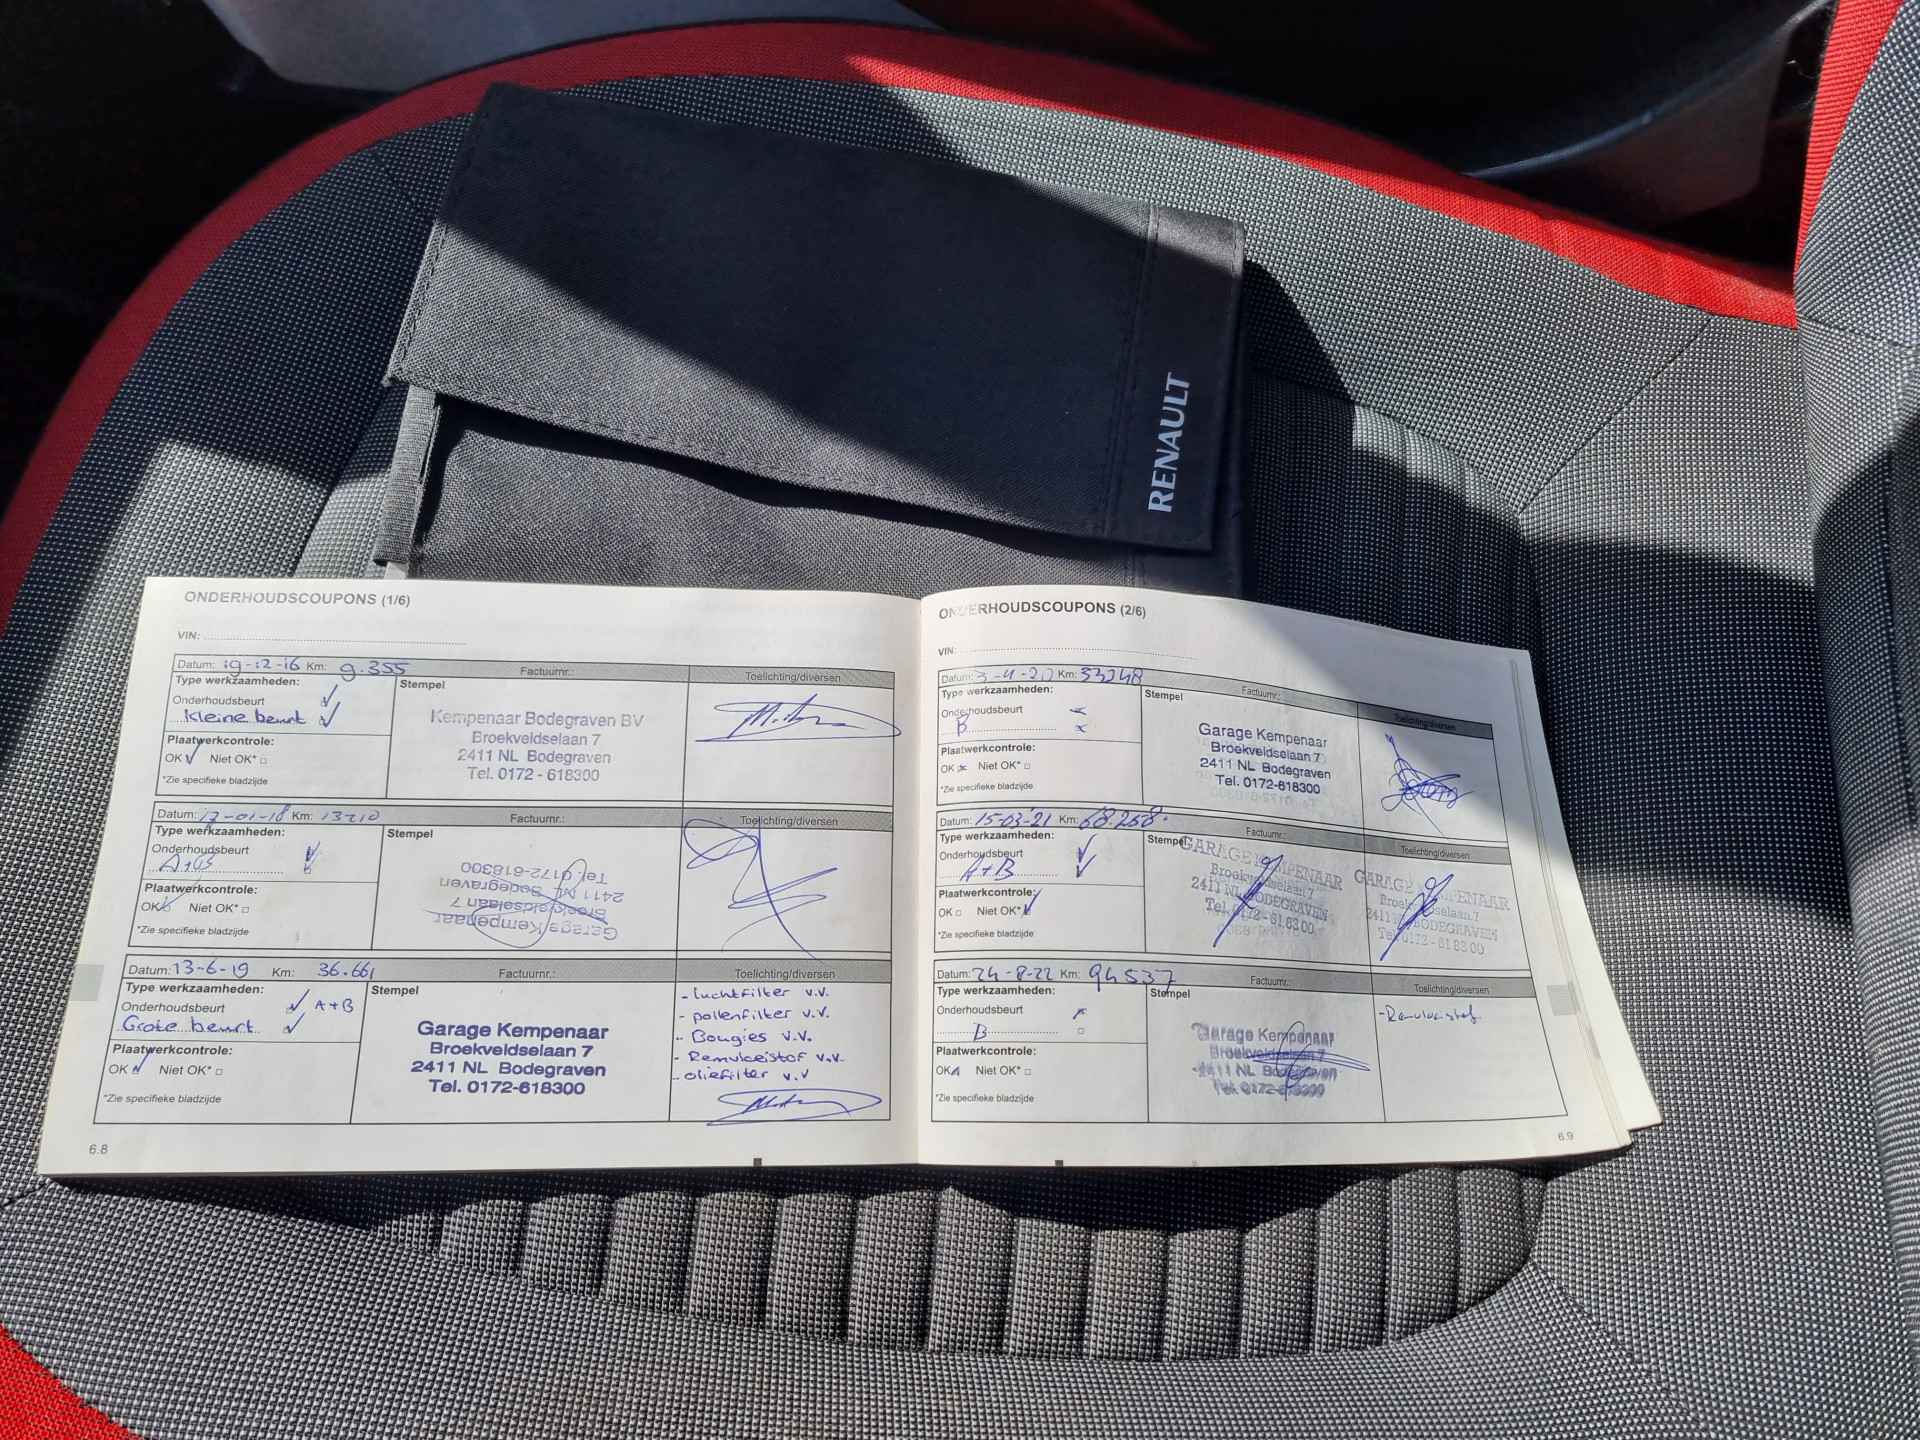 RENAULT
ONDERHOUDSCOUPONS (1/6)
VIN:
Datum: 19-12-16 Km: 9.355 Factuurnr.: Toelichting/diversen
Type werkzaamheden: Stempel
Onderhoudsbeurt
Kleine beurt
Plaatwerkcontrole:
OK Niet OK*
*Zie specifieke bladzijde
Kempenaar Bodegraven BV
Broekveldselaan 7
2411 NL Bodegraven
Tel. 0172 - 618300
Datum: 17-01-18 Km: 13210 Factuurnr.: Toelichting/diversen
Type werkzaamheden: Stempel
Onderhoudsbeurt
Plaatwerkcontrole:
OK Niet OK*
*Zie specifieke bladzijde
Garage Kempenaar
Broekveldselaan 7
2411 NL Bodegraven
Tel. 0172-618300
Datum: 13-6-19 Km: 36.661 Factuurnr.: Toelichting/diversen
Type werkzaamheden: Stempel
Onderhoudsbeurt A+B
Grote beurt
Plaatwerkcontrole:
OK Niet OK*
*Zie specifieke bladzijde
Garage Kempenaar
Broekveldselaan 7
2411 NL Bodegraven
Tel. 0172-618300
- luchtfilter v.v.
- pollenfilter v.v.
- Bougies v.v.
- Remvloeistof v.v.
- oliefilter v.v
6.8
ONDERHOUDSCOUPONS (2/6)
VIN:
Datum: 3-4-20 Km: 53248 Factuurnr.: Toelichting/diversen
Type werkzaamheden: Stempel
Onderhoudsbeurt
B
Plaatwerkcontrole:
OK Niet OK*
*Zie specifieke bladzijde
Garage Kempenaar
Broekveldselaan 7
2411 NL Bodegraven
Tel. 0172-618300
Datum: 15-03-'21 Km: 68.268. Factuurnr.: Toelichting/diversen
Type werkzaamheden: Stempel
Onderhoudsbeurt
A+B
Plaatwerkcontrole:
OK Niet OK*
*Zie specifieke bladzijde
GARAGE KEMPENAAR
Broekveldselaan 7
2411 NL BODEGRAVEN
Tel. 0172-618300
GARAGE KEMPENAAR
Broekveldselaan 7
2411 NL BODEGRAVEN
Tel. 0172-618300
Datum: 24-8-22 Km: 94537 Factuurnr.: Toelichting/diversen
Type werkzaamheden: Stempel
Onderhoudsbeurt
B
Plaatwerkcontrole:
OK Niet OK*
*Zie specifieke bladzijde
Garage Kempenaar
Broekveldselaan 7
2411 NL Bodegraven
Tel. 0172-618300
- Remvloeistof
6.9